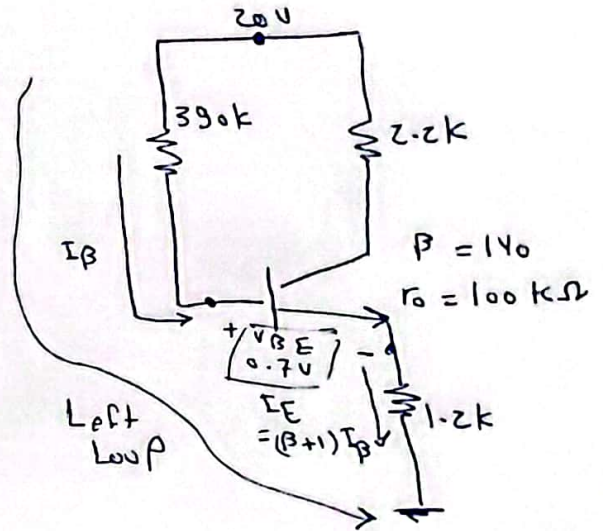 20V
390k
2.2k
Iβ
β = 140
r₀ = 100 kΩ
+ VBE -
0.7V
IE
=(β+1) Iβ
1.2k
Left
Loop